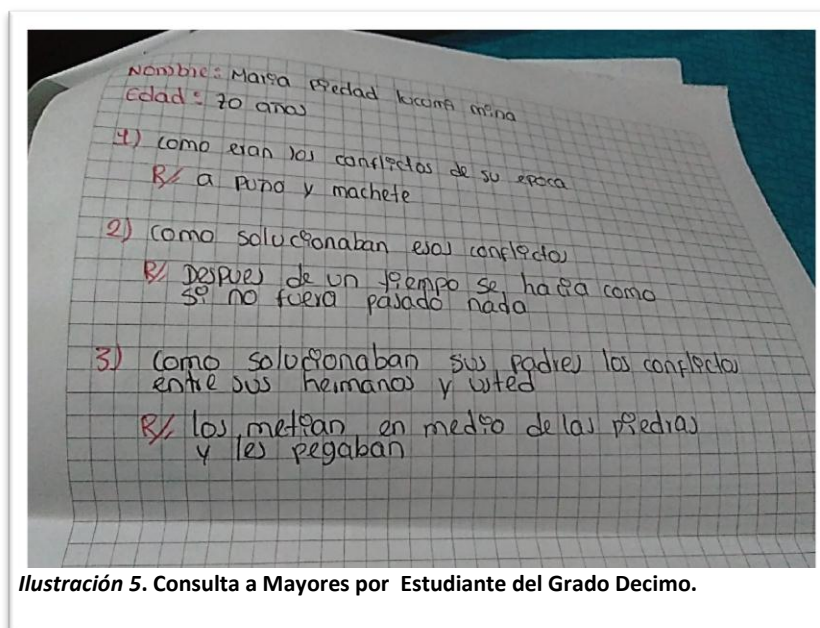 Nombre: Maria piedad lucumi mina
Edad: 70 años
1) como eran los conflictos de su epoca
R/ a puño y machete
2) como solucionaban esos conflictos
R/ Despues de un tiempo se hacia como
si no fuera pasado nada
3) como solucionaban sus padres los conflictos
entre sus hermanos y usted
R/ los metian en medio de las piedras
y les pegaban
Ilustración 5. Consulta a Mayores por Estudiante del Grado Decimo.